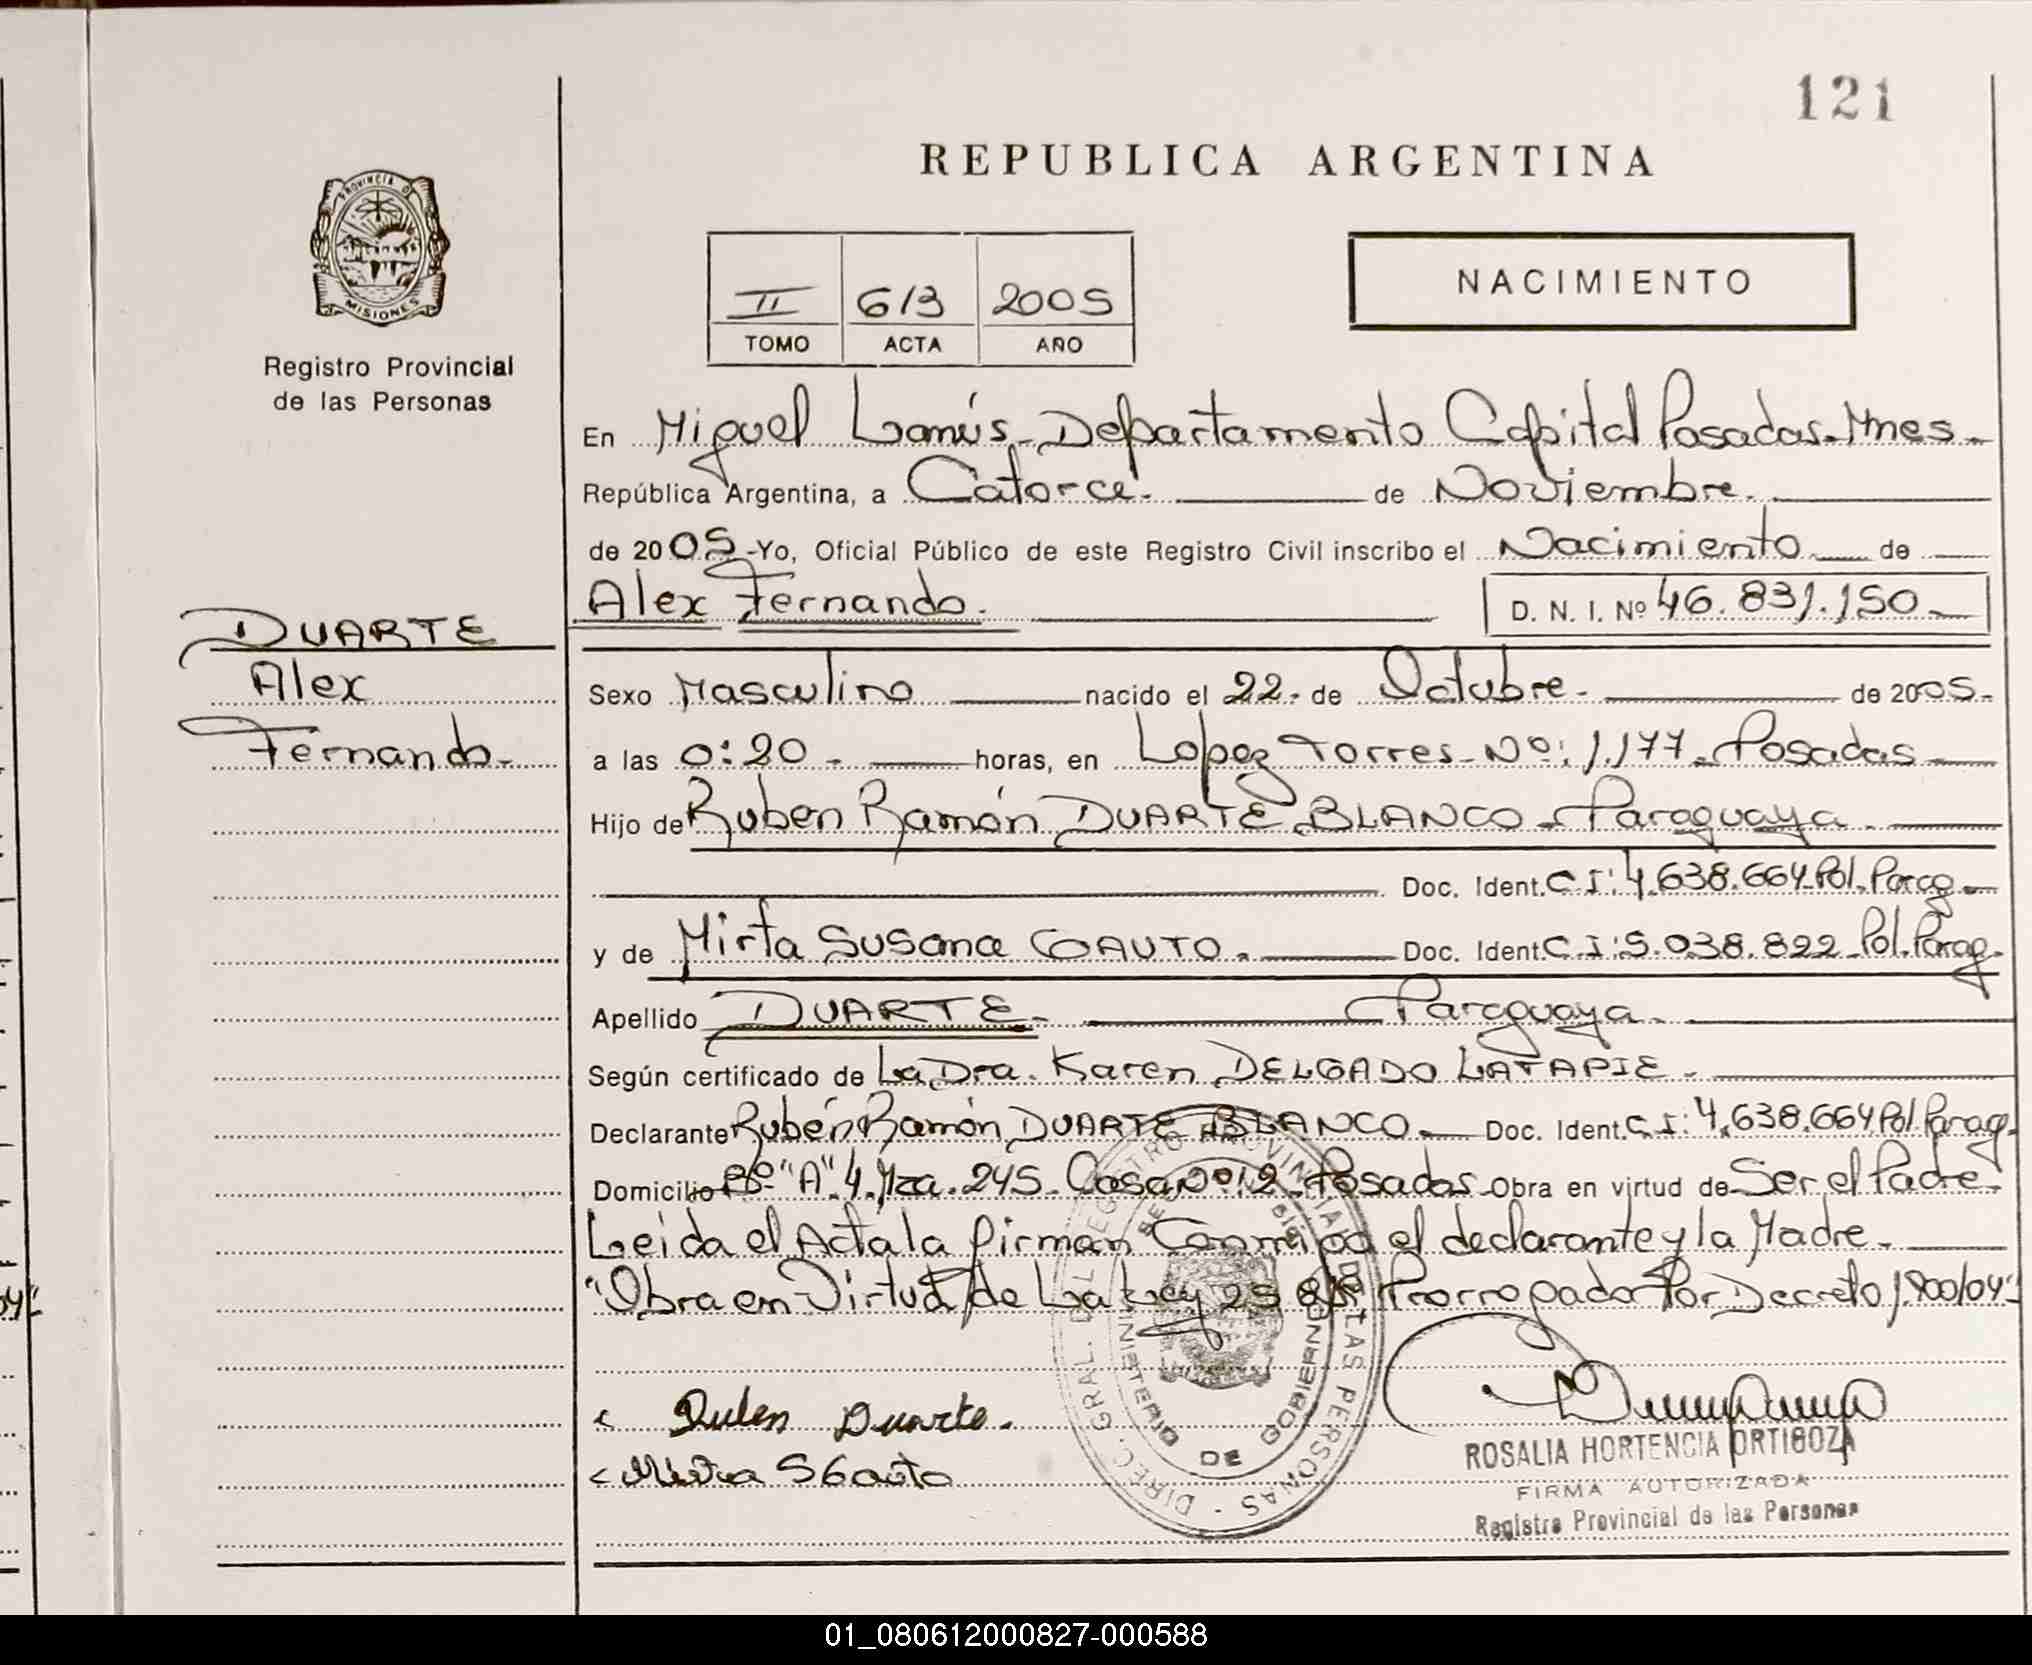 121
REPUBLICA ARGENTINA
PROVINCIA DE
MISIONES
Registro Provincial
de las Personas
II 613 2005
TOMO ACTA AÑO
NACIMIENTO
En Miguel Lanús - Departamento Capital Posadas - Mnes -
República Argentina, a Catorce. de Noviembre.
de 2005 -Yo, Oficial Público de este Registro Civil inscribo el Nacimiento de
Alex Fernando. D. N. I. Nº 46.831.150 -
DUARTE
Alex
Fernando -
Sexo Masculino nacido el 22 - de Octubre - de 2005 -
a las 0:20 - horas, en Lopez Torres - Nº: 1.177 - Posadas -
Hijo de Ruben Ramón DUARTE BLANCO - Paraguaya.
Doc. Ident. C.I: 4.638.664 Pol. Parag -
y de Mirta Susana GAUTO. Doc. Ident C.I: 5.038.822 - Pol. Parag -
Apellido DUARTE - Paraguaya.
Según certificado de La Dra. Karen DELGADO LATAPIE -
Declarante Rubén Ramón DUARTE BLANCO - Doc. Ident. C.I: 4.638.664 Pol. Parag -
Domicilio Bº "A" 4 - Mza. 245 - Casa Nº 12 - Posadas - Obra en virtud de Ser el Padre -
Leida el Acta la firman Conmigo el declarante y la Madre -
"Obra en Virtud de La Ley 25 Prorrogada Por Decreto 1.900/04"
Ruben Duarte.
Mirta S Gauto
DIREC. GRAL. DEL REGISTRO PROVINCIAL DE LAS PERSONAS
MINISTERIO DE GOBIERNO
ROSALIA HORTENCIA ORTIGOZA
FIRMA AUTORIZADA
Registro Provincial de las Personas
01_080612000827-000588